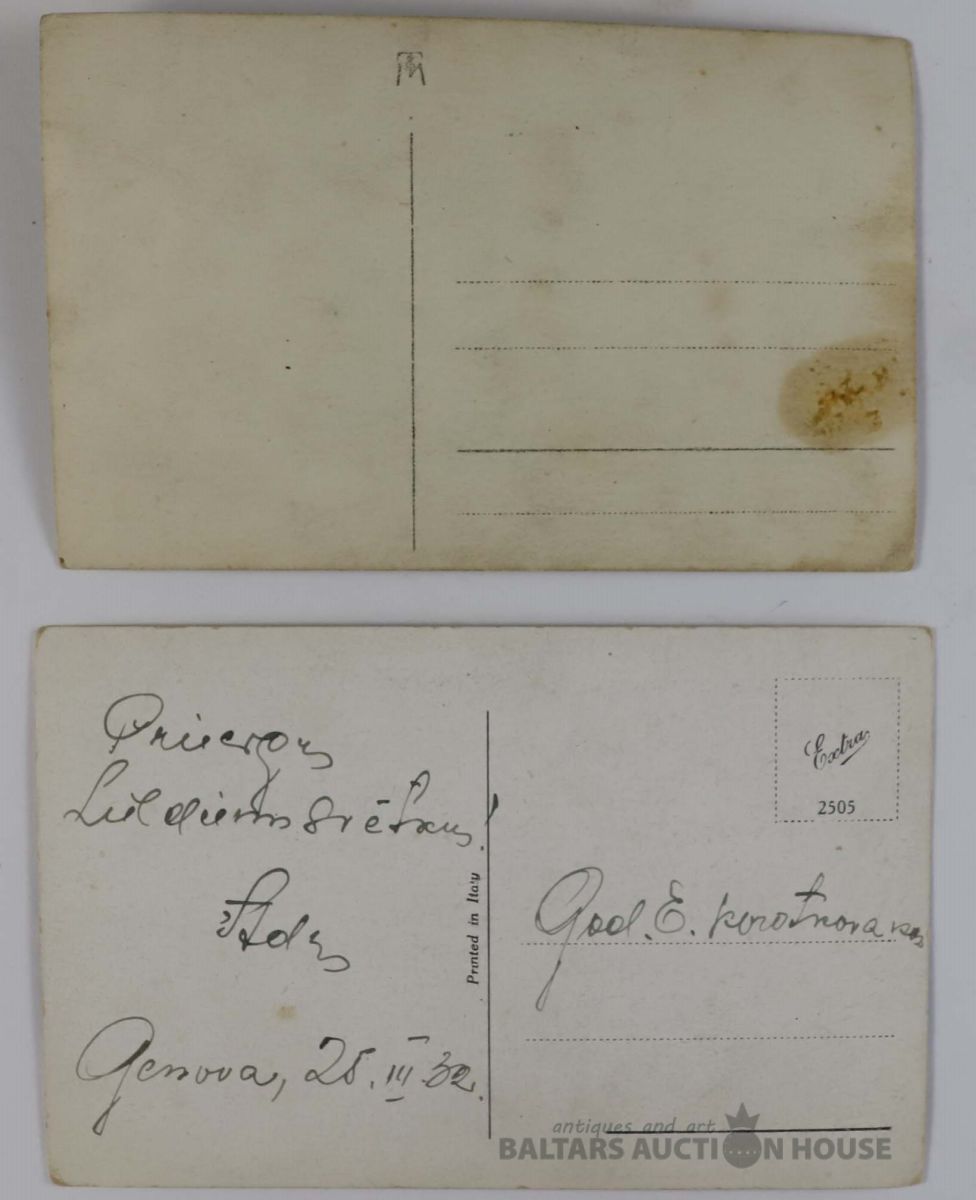 Priecīgus
Lieldienas svētkus!
Genova, 25. III 32.
Printed in Italy
Extra
2505
God. E. Korotkova kdze
antiques and art
BALTARS AUCTION HOUSE